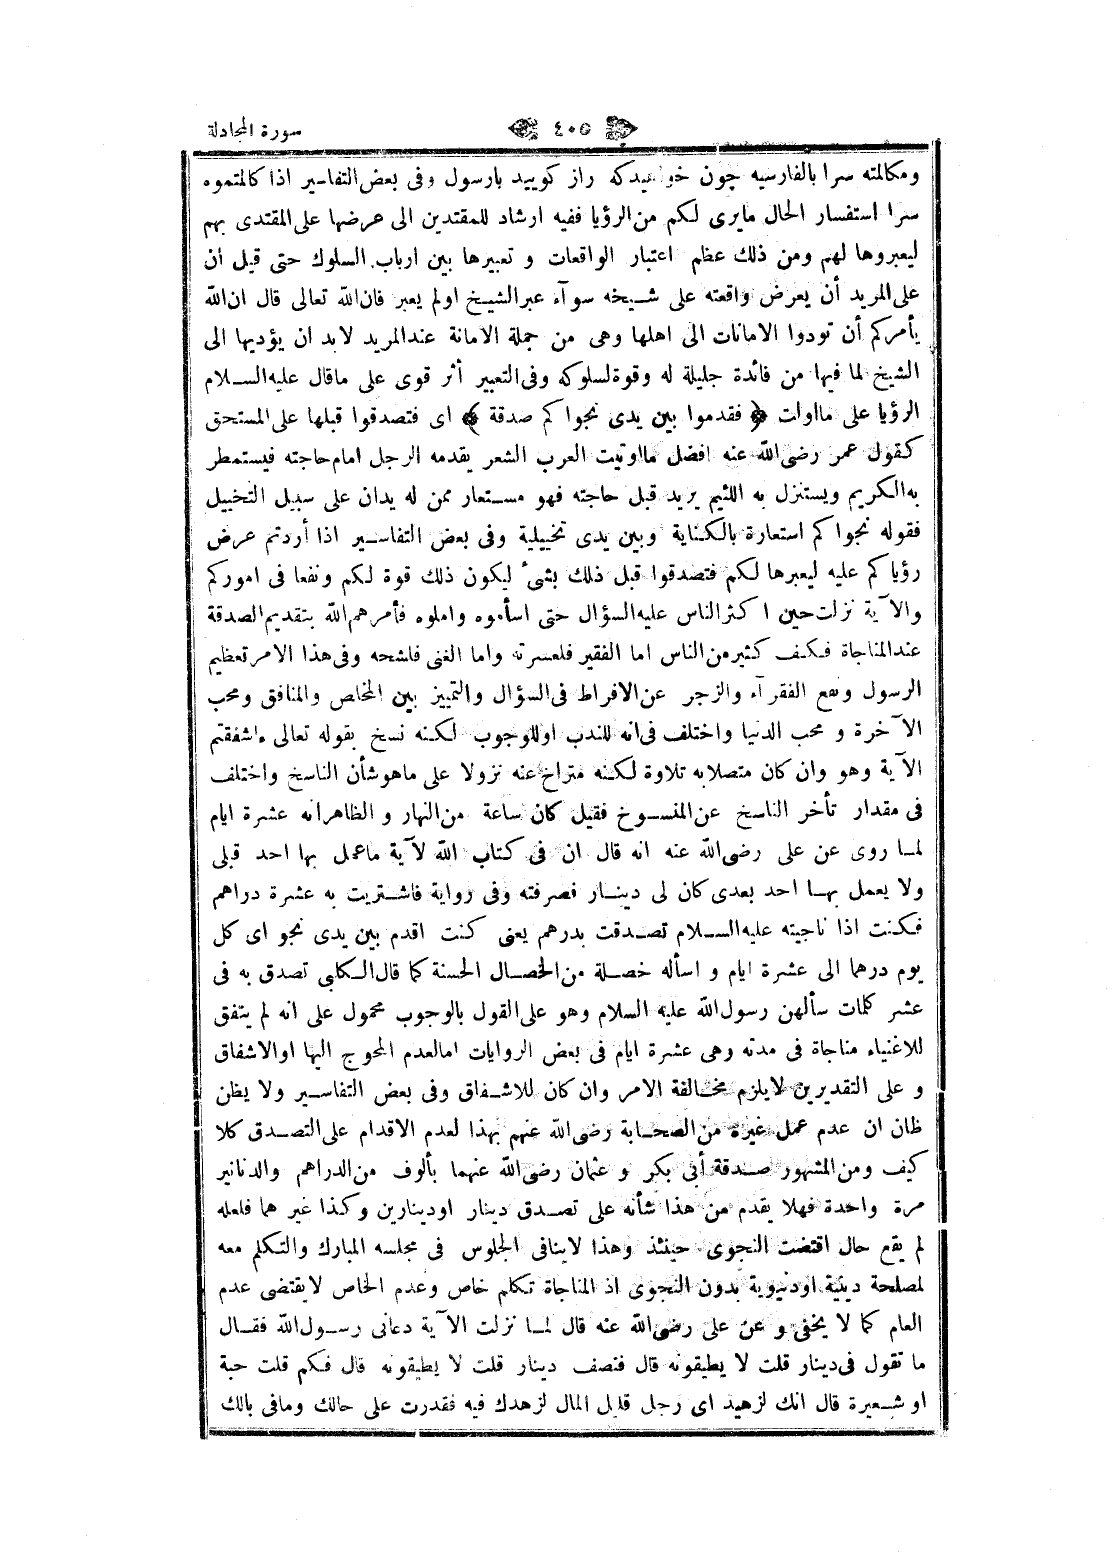 سورة المجادلة
٤٠٥
ومكالمته سرا بالفارسيه چون خواهيدكه راز كوييد بارسول وفى بعض التفاسير اذا كالمتموه
سرا استفسار الحال مايرى لكم من الرؤيا ففيه ارشاد للمقتدين الى عرضها على المقتدى بهم
ليعبروها لهم ومن ذلك عظم اعتبار الواقعات و تعبيرها بين ارباب السلوك حتى قيل أن
على المريد أن يعرض واقعته على شيخه سوآء عبر الشيخ اولم يعبر فان الله تعالى قال ان الله
يأمركم أن تودوا الامانات الى اهلها وهى من جملة الامانة عند المريد لابد ان يؤديها الى
الشيخ لما فيها من فائدة جليلة له وقوة لسلوكه وفى التعبير أثر قوى على ماقال عليه السلام
الرؤيا على مااولت ﴿ فقدموا بين يدى نجواكم صدقة ﴾ اى فتصدقوا قبلها على المستحق
كقول عمر رضى الله عنه افضل مااوتيت العرب الشعر يقدمه الرجل امام حاجته فيستمطر
به الكريم ويستنزل به اللئيم يريد قبل حاجته فهو مستعار ممن له يدان على سبيل التخييل
فقوله نجواكم استعارة بالكناية وبين يدى تخييلية وفى بعض التفاسير اذا أردتم عرض
رؤياكم عليه ليعبرها لكم فتصدقوا قبل ذلك بشئ ليكون ذلك قوة لكم ونفعا فى اموركم
والآية نزلت حين اكثر الناس عليه السؤال حتى اسأموه واملوه فأمرهم الله بتقديم الصدقة
عند المناجاة فكف كثير من الناس اما الفقير فلعسرته واما الغنى فلشحه وفى هذا الامر تعظيم
الرسول ونفع الفقرآء والزجر عن الافراط فى السؤال والتمييز بين المخلص والمنافق ومحب
الآخرة و محب الدنيا واختلف فى انه للندب اوللوجوب لكنه نسخ بقوله تعالى ءاشفقتم
الآية وهو وان كان متصلا به تلاوة لكنه متراخ عنه نزولا على ماهوشأن الناسخ واختلف
فى مقدار تأخر الناسخ عن المنسوخ فقيل كان ساعة من النهار و الظاهر انه عشرة ايام
لما روى عن على رضى الله عنه انه قال ان فى كتاب الله لآية ماعمل بها احد قبلى
ولا يعمل بها احد بعدى كان لى دينار فصرفته وفى رواية فاشتريت به عشرة دراهم
فكنت اذا ناجيته عليه السلام تصدقت بدرهم يعنى كنت اقدم بين يدى نجواى كل
يوم درهما الى عشرة ايام و اسأله خصلة من الخصال الحسنة كما قال الكلبى تصدق به فى
عشر كلمات سألهن رسول الله عليه السلام وهو على القول بالوجوب محمول على انه لم يتفق
للاغنياء مناجاة فى مدته وهى عشرة ايام فى بعض الروايات امالعدم المحوج اليها اوالاشفاق
و على التقديرين لايلزم مخالفة الامر وان كان للاشفاق وفى بعض التفاسير ولا يظن
ظان ان عدم عمل غيره من الصحابة رضى الله عنهم بهذا لعدم الاقدام على التصدق كلا
كيف ومن المشهور صدقة أبى بكر و عثمان رضى الله عنهما بألوف من الدراهم والدنانير
مرة واحدة فهلا يقدم من هذا شأنه على تصدق دينار اودينارين وكذا غيرهما فلعله
لم يقع حال اقتضت النجوى حينئذ وهذا لاينافى الجلوس فى مجلسه المبارك والتكلم معه
لمصلحة دينية اودنيوية بدون النجوى اذ المناجاة تكلم خاص وعدم الخاص لايقتضى عدم
العام كما لا يخفى و عن على رضى الله عنه قال لما نزلت الآية دعانى رسول الله فقال
ما تقول فى دينار قلت لا يطيقونه قال فنصف دينار قلت لا يطيقونه قال فكم قلت حبة
او شعيرة قال انك لزهيد اى رجل قليل المال لزهدك فيه فقدرت على حالك ومافى بالك